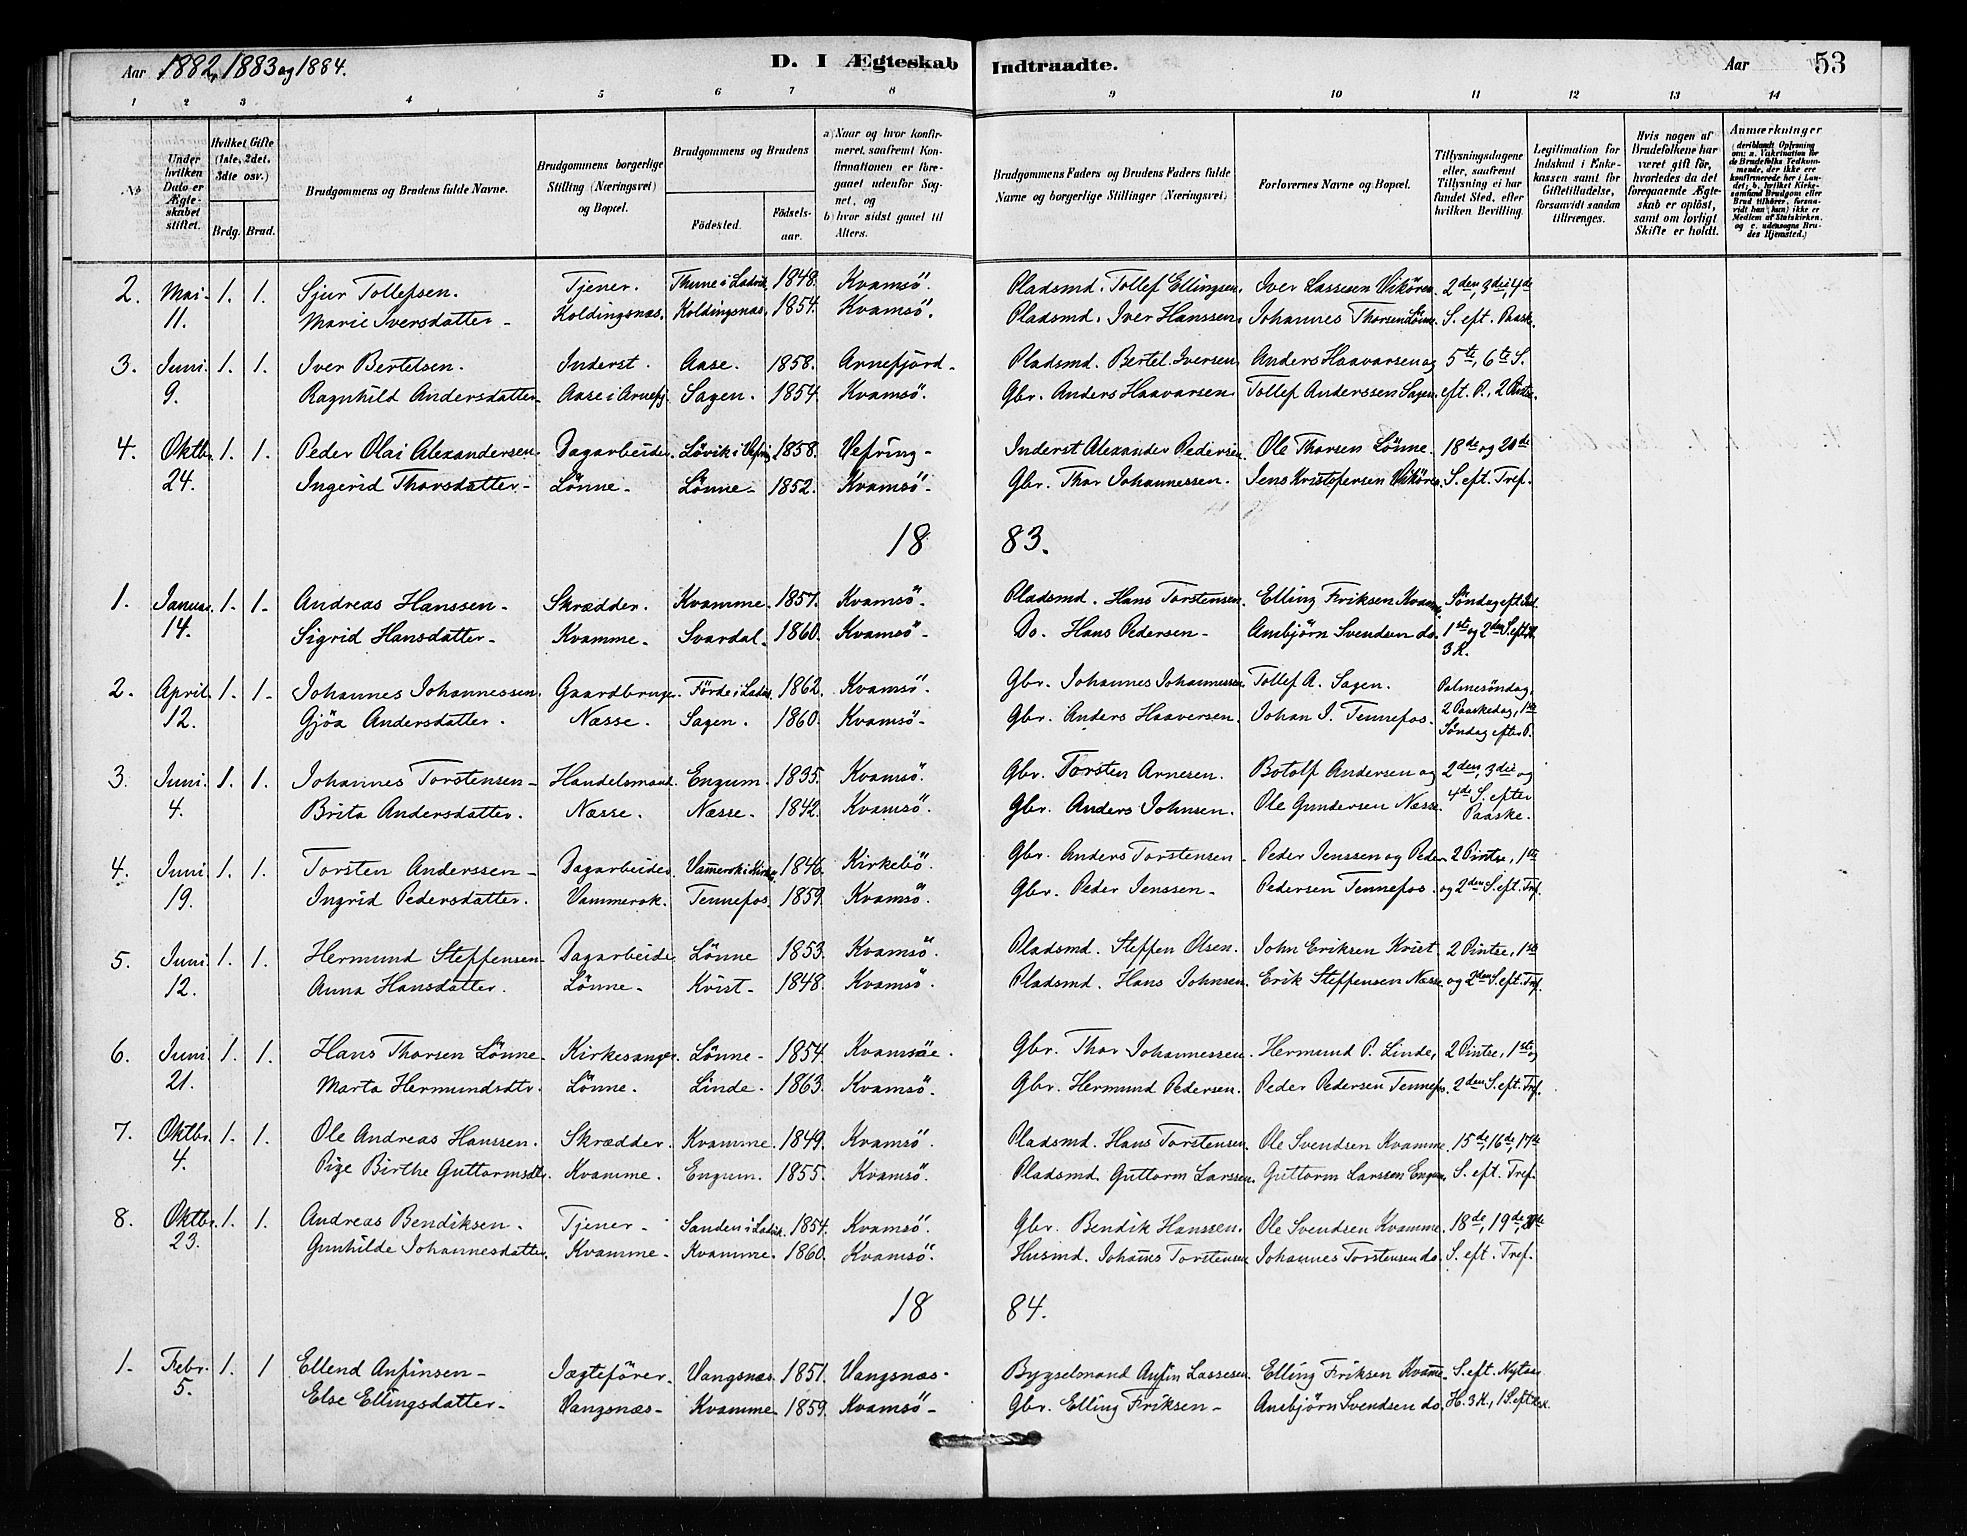 Aar 1882, 1883 og 1884. D. I Ægteskab Indtraadte. Aar 53
1 2 3 4 5 6 7 8 9 10 11 12 13 14
No. Under hvilken Dato er Ægteskabet stiftet. Hvilket Gifte (1ste, 2det, 3die osv.) Brdg. Brud. Brudgommens og Brudens fulde Navne. Brudgommens borgerlige Stilling (Næringsvei) og Bopæl. Brudgommens og Brudens Fødested. Fødselsaar. a) Naar og hvor konfirmeret, saafremt Konfirmationen er foregaaet udenfor Sognet, og b) hvor sidst gaaet til Alters. Brudgommens Faders og Brudens Faders fulde Navne og borgerlige Stillinger (Næringsvei) Forlovernes Navne og Bopæl. Tillysningsdagene eller, saafremt Tillysning ei har fundet Sted, efter hvilken Bevilling. Legitimation for Indskud i Enkekassen samt for Giftetilladelse, forsaavidt saadan tiltrænges. Hvis nogen af Brudefolkene har været gift før, hvorledes da det foregaaende Ægteskab er opløst, samt om lovligt Skifte er holdt. Anmærkninger (deriblandt Oplysning om: a. Vakcination for de Brudefolks Vedkommende, der ikke ere konfirmerede her i Landet; b. hvilket Kirkesamfund Brudgom eller Brud tilhører, forsaavidt han (hun) ikke er Medlem af Statskirken, og c. udensogns Brudes Hjemsted.)
2. Mai 1. 1. Sjur Tollefsen. Tjener. Thune i Ladvik 1848. Kvamsö. Pladsmd. Tollef Ellingsen. Iver Lassesen Vikören. 2den, 3die, 4de
11. Marie Iversdatter Koldingsnæs. Koldingsnæs. 1854. Kvamsö. Pladsmd. Iver Hanssen. Johannes Thorsen Lönne. S. eft. Paask.
3. Juni. 1. 1. Iver Bertelsen. Inderst. Aase. 1858. Arnefjord. Pladsmd. Bertel Iversen. Anders Haavarsen og 5te, 6te S.
9. Ragnhild Andersdatter Aase i Arnefj. Sagen. 1854. Kvamsö. Gbr. Anders Haavarsen Tollef Anderssen Sagen. eft. P., 2 Pintse.
4. Oktbr. 1. 1. Peder Olai Alexandersen. Dagarbeider. Lövik i Vefring 1858. Vefring Inderst Alexander Pedersen. Ole Thorsen Lönne. 18de og 20de
24. Ingerid Thorsdatter Lönne Lönne 1852. Kvamsö Gbr. Thor Johannessen. Jens Kristofersen Vikören. S. eft. Tref.
18 83.
1. Januar. 1. 1 Andreas Hanssen Skrædder. Kvamme. 1857. Kvamsö. Pladsmd. Hans Torstensen. Elling Friksen Kvamme. Söndag eft. Jul.
14. Sigrid Hansdatter Kvamme Svardal 1860. Kvamsö Do. Hans Pedersen Ansbjörn Svendsen do. 1ste og 2den S. eft. H.
3 K.
2. April. 1. 1 Johannes Johannessen. Gaardbruger. Förde i Ladvik. 1862. Kvamsö. Gbr. Johannes Johannessen. Tollef A. Sagen. Palmesöndag,
12. Gjöa Andersdatter. Næsse. Sagen. 1860. Kvamsö Gbr. Anders Haaversen. Johan J. Tennefos. 2 Paaskedag, 1ste
Söndag efter P.
3. Juni. 1. 1. Johannes Torstensen Handelsmand. Engum. 1835. Kvamsö. Gbr. Torsten Arnesen. Botolf Andersen og 2den, 3die og
4. Brita Andersdatter. Næsse. Næsse. 1842. Kvamsö. Gbr. Anders Johnsen. Ole Gundersen Næsse. 4de S. efter
Paaske.
4. Juni 1. 1. Torsten Anderssen Dagarbeider. Vamerok i Kirkeb. 1846. Kirkebö. Gbr. Anders Torstensen Peder Jenssen og Peder 2 Pintse, 1ste
19. Ingrid Pedersdatter. Vammerok. Tennefos. 1859. Kvamsö. Gbr. Peder Jenssen Pedersen Tennefos. og 2den S. eft. Tref.
5. Juni 1. 1. Hermund Steffensen Dagarbeider. Lönne 1853. Kvamsö. Pladsmd. Steffen Olsen. John Eriksen Kvist. 2 Pintse, 1ste
12. Anna Hansdatter. Lönne Kvist 1848. Kvamsö. Pladsmd. Hans Johnsen. Erik Steffensen Næsse. og 2den S. eft. Tref.
6. Juni 1. 1. Hans Thorsen Lönne Kirkesanger. Lönne 1854. Kvamsöe. Gbr. Thor Johannessen. Hermund P. Linde, 2 Pintse, 1ste og
21. Marta Hermundsdtr. Lönne. Linde. 1863. Kvamsö. Gbr. Hermund Pedersen. Peder Pedersen Tennefos. 2den S. eft. Tref.
7. Oktbr. 1. 1. Ole Andreas Hanssen. Skrædder. Kvamme. 1849. Kvamsö. Pladsmd. Hans Torstensen. Ole Svendsen Kvamme. 15de, 16de, 17de
4. Pige Birthe Guttormsdtr. Kvamme. Engum. 1855. Kvamsö. Pladsmd. Guttorm Larssen. Guttorm Larssen Engum. S. eft. Tref.
8. Oktbr. 1. 1. Andreas Bendiksen. Tjener Sanden i Ladvik. 1854. Kvamsö. Gbr. Bendik Hanssen. Ole Svendsen Kvamme. 18de, 19de, 20de
23. Gunhilde Johannesdatter. Kvamme Kvamme. 1860. Kvamsö. Husmd. Johañes Torstensen Johannes Torstensen do. S. eft. Tref.
18 84.
1. Febr. 1. 1 Ellend Anfinsen Jægteförer. Vangsnæs. 1851. Vangsnæs. Bygselmand Anfin Lassesen. Elling Friksen Kvam̃e. S. eft. Nytaar
5. Else Ellingsdatter Vangsnæs Kvamme 1859. Kvamsö Gbr. Elling Friksen Ansbjörn Svendsen do. H. 3 K., 1 S. eft. H. 3 K.